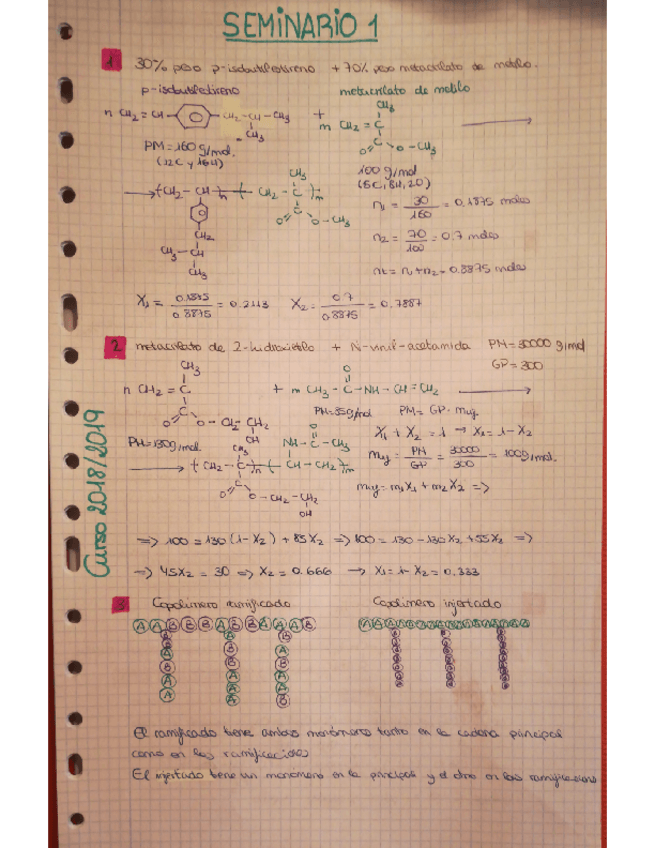 SEMINARIO 1
1 30% peso p-isobutilestireno + 70% peso metacrilato de metilo.
p-isobutilestireno metacrilato de metilo
n CH2 = CH CH2 - CH - CH3 + m CH2 = C
CH3
CH3
C
O O - CH3
PM = 160 g/mol.
(12C y 16H)
100 g/mol
(5C, 8H, 2O)
(CH2 - CH)n (CH2 - C)m
CH3
C
O O - CH3
CH2
CH3 - CH
CH3
n1 = 30/160 = 0.1875 moles
n2 = 70/100 = 0.7 moles
nt = n1 + n2 = 0.8875 moles
X1 = 0.1875/0.8875 = 0.2113 X2 = 0.7/0.8875 = 0.7887
2 metacrilato de 2-hidroxietilo + N-vinil-acetamida PM = 30000 g/mol
GP = 300
CH3 O
n CH2 = C + m CH3 - C - NH - CH = CH2
C
O O - CH2 - CH2
OH
PM = 85 g/mol PM = GP · muy
PM = 130 g/mol.
X1 + X2 = 1 → X1 = 1 - X2
CH3 NH - C - CH3
O
(CH2 - C)n (CH - CH2)m
C
O O - CH2 - CH2
OH
muy = PM/GP = 30000/300 = 100 g/mol.
muy = m1X1 + m2X2 =>
=> 100 = 130 (1 - X2) + 85X2 => 100 = 130 - 130X2 + 85X2 =>
=> 45X2 = 30 => X2 = 0.666 → X1 = 1 - X2 = 0.333
Curso 2018/2019
3 Copolímero ramificado Copolímero injertado
El ramificado tiene ambos monómeros tanto en la cadena principal
como en las ramificaciones
El injertado tiene un monómero en la principal y el otro en las ramificaciones